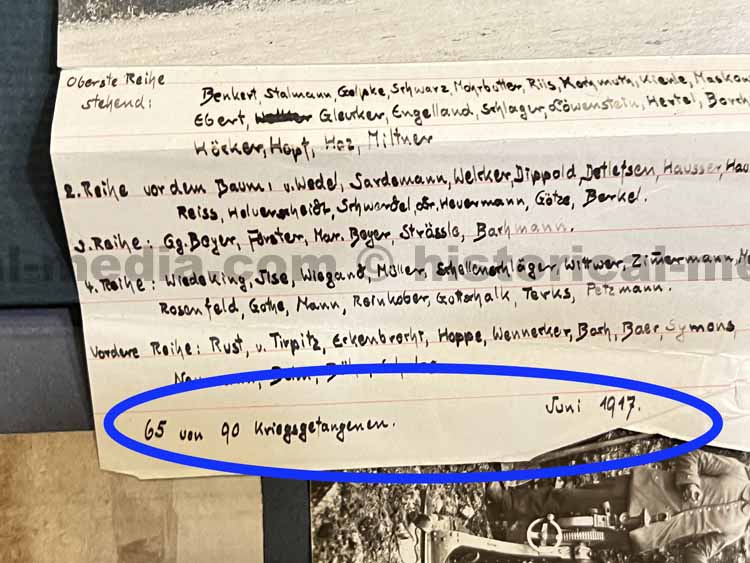 Oberste Reihe
stehend: Benkert, Stalmann, Golpke, Schwarz, Mohrbutter, Rils, Kochmuth, Kienle,
Ebert, Gleurker, Engelland, Schlager, Löwenstein, Hertel,
Höcker, Hopf, Haz, Miltner
2. Reihe vor dem Baum: v. Wedel, Sardemann, Welcker, Dippold, Detlefsen, Hausser,
Reiss, Schwardel, Dr. Heuermann, Götze, Berkel.
3. Reihe: Gg. Beyer, Förster, Mar. Beyer, Strässle, Bachmann.
4. Reihe: Wiedeking, Ilse, Wiegand, Müller, Schellenschläger, Wittwer, Zim̄ermann,
Rosenfeld, Gothe, Mann, Reinkober, Gottschalk, Terks, Petzmann.
Vordere Reihe: Rust, v. Tirpitz, Eckenbrecht, Hoppe, Wennecker, Bach, Baer, Symons,
65 von 90 Kriegsgefangenen. Juni 1917.
al-media.com © historical-m